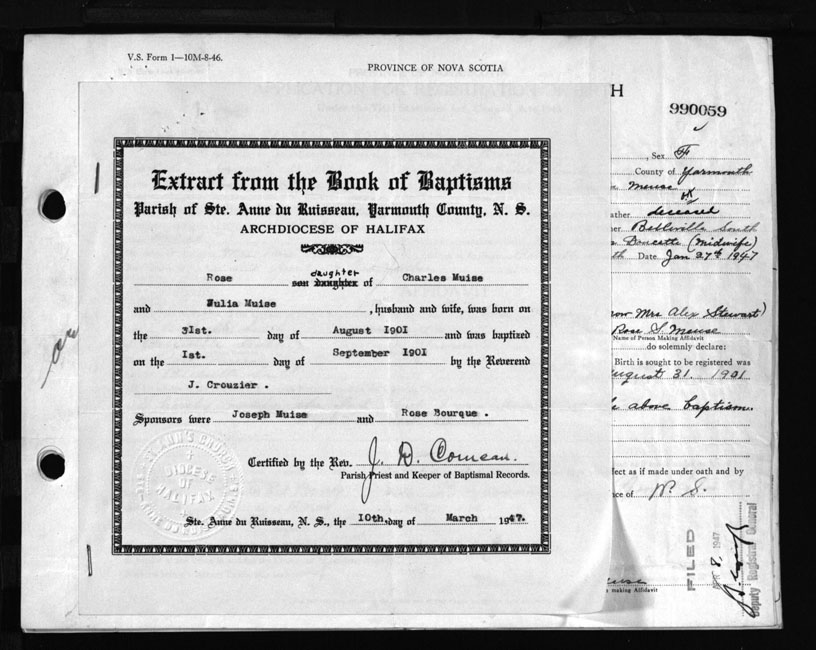 V.S. Form 1—10M-8-46.
PROVINCE OF NOVA SCOTIA
H
990059
Extract from the Book of Baptisms
Parish of Ste. Anne du Ruisseau, Yarmouth County, N. S.
ARCHDIOCESE OF HALIFAX
Rose son daughter daughter of Charles Muise
and Julia Muise, husband and wife, was born on
the 31st. day of August 1901 and was baptized
on the 1st. day of September 1901 by the Reverend
J. Crouzier .
Sponsors were Joseph Muise and Rose Bourque .
Certified by the Rev. J. D. Comeau.
Parish Priest and Keeper of Baptismal Records.
Ste. Anne du Ruisseau, N. S., the 10th. day of March 1947.
DIOCESE OF HALIFAX
, Sex F
County of Yarmouth
Meuse
ather deceased
her Belleville South
Doucette (Midwife)
th Date Jan 27th 1947
now Mrs Alex Stewart)
Rose S. Meuse
Name of Person Making Affidavit
do solemnly declare:
Birth is sought to be registered was
August 31. 1901
above baptism.
fect as if made under oath and by
nce of N. S.
FILED
8, 1947
Deputy Registrar General
making Affidavit